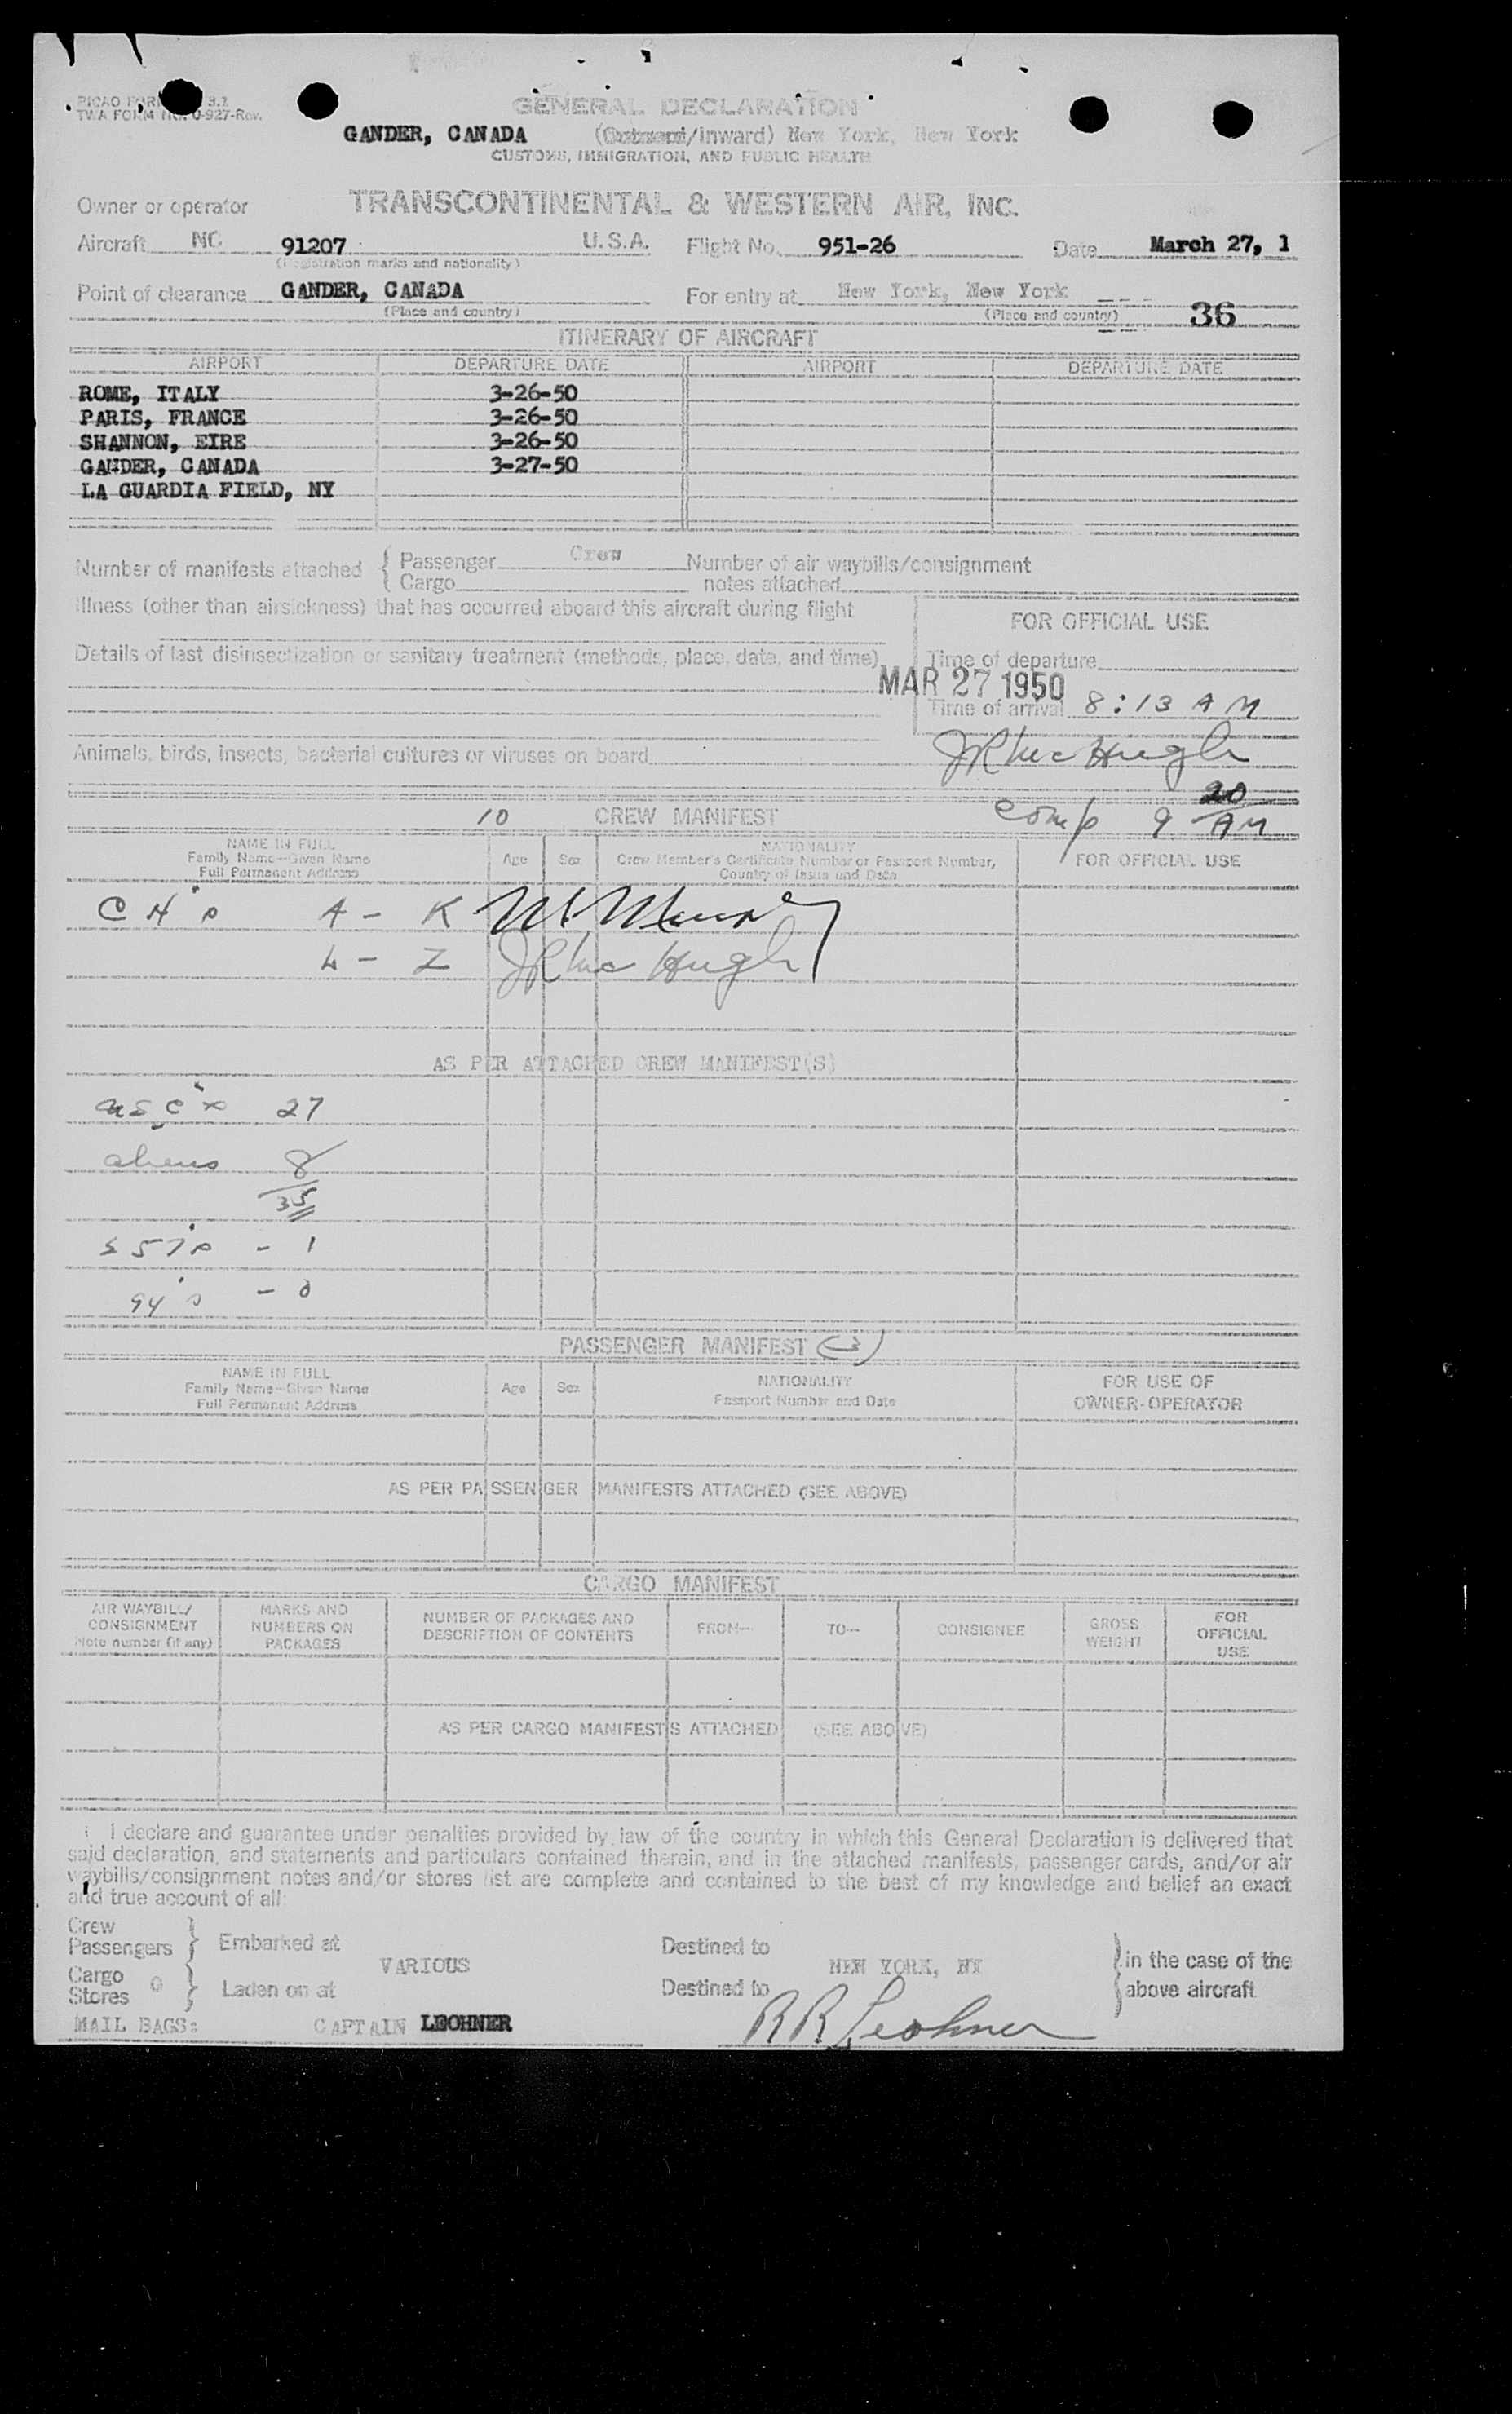 PICAO FORM 3.1
TWA FORM NO. 0-927-Rev.
GENERAL DECLARATION
GANDER, CANADA (Outward/Inward) New York, New York
CUSTOMS, IMMIGRATION, AND PUBLIC HEALTH
Owner or operator TRANSCONTINENTAL & WESTERN AIR, INC.
Aircraft NC 91207 U.S.A. Flight No. 951-26 Date March 27, 1
(Registration marks and nationality)
Point of clearance GANDER, CANADA For entry at New York, New York
(Place and country) (Place and country) 36
ITINERARY OF AIRCRAFT
AIRPORT DEPARTURE DATE AIRPORT DEPARTURE DATE
ROME, ITALY 3-26-50
PARIS, FRANCE 3-26-50
SHANNON, EIRE 3-26-50
GANDER, CANADA 3-27-50
LA GUARDIA FIELD, NY
Number of manifests attached { Passenger Crew Number of air waybills/consignment
{ Cargo notes attached
Illness (other than airsickness) that has occurred aboard this aircraft during flight
FOR OFFICIAL USE
Details of last disinsectization or sanitary treatment (methods, place, date, and time)
Time of departure
MAR 27 1950
Time of arrival 8:13 AM
Animals, birds, insects, bacterial cultures or viruses on board
JR McHugh
10 CREW MANIFEST comp 9 20 AM
NAME IN FULL
Family Name—Given Name
Full Permanent Address
Age Sex
NATIONALITY
Crew Member's Certificate Number or Passport Number,
Country of Issue and Date
FOR OFFICIAL USE
A - K
L - Z JR McHugh
AS PER ATTACHED CREW MANIFEST(S)
27
aliens 8
35
- 1
94's - 0
PASSENGER MANIFEST (3)
NAME IN FULL
Family Name—Given Name
Full Permanent Address
Age Sex
NATIONALITY
Passport Number and Date
FOR USE OF
OWNER-OPERATOR
AS PER PASSENGER MANIFESTS ATTACHED (SEE ABOVE)
CARGO MANIFEST
AIR WAYBILL/
CONSIGNMENT
Note number (if any)
MARKS AND
NUMBERS ON
PACKAGES
NUMBER OF PACKAGES AND
DESCRIPTION OF CONTENTS
FROM— TO— CONSIGNEE
GROSS
WEIGHT
FOR
OFFICIAL
USE
AS PER CARGO MANIFESTS ATTACHED (SEE ABOVE)
I declare and guarantee under penalties provided by law of the country in which this General Declaration is delivered that
said declaration, and statements and particulars contained therein, and in the attached manifests, passenger cards, and/or air
waybills/consignment notes and/or stores list are complete and contained to the best of my knowledge and belief an exact
and true account of all:
Crew
Passengers } Embarked at Destined to
VARIOUS NEW YORK, NY } in the case of the
Cargo
Stores 0 } Laden on at Destined to above aircraft
MAIL BAGS: CAPTAIN LEOHNER RR Leohner